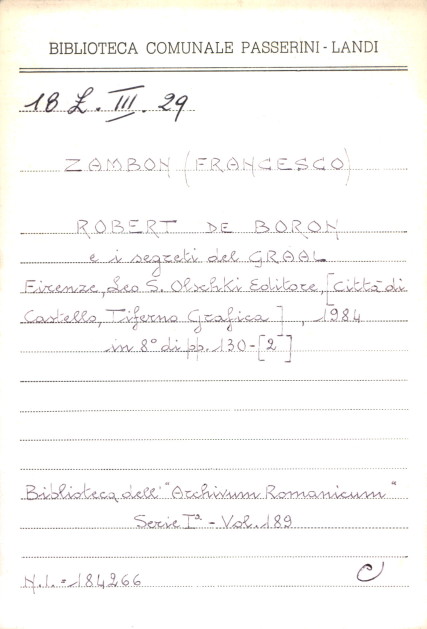 BIBLIOTECA COMUNALE PASSERINI-LANDI
18 L. III. 29
ZAMBON (FRANCESCO)
ROBERT DE BORON
e i segreti del GRAAL
Firenze, Leo S. Olschki Editore, [Città di
Castello, Tiferno Grafica], 1984
in 8° di pp. 130-[2]
Biblioteca dell'"Archivum Romanicum"
Serie Iª - Vol. 189
N.I. = 184266
C